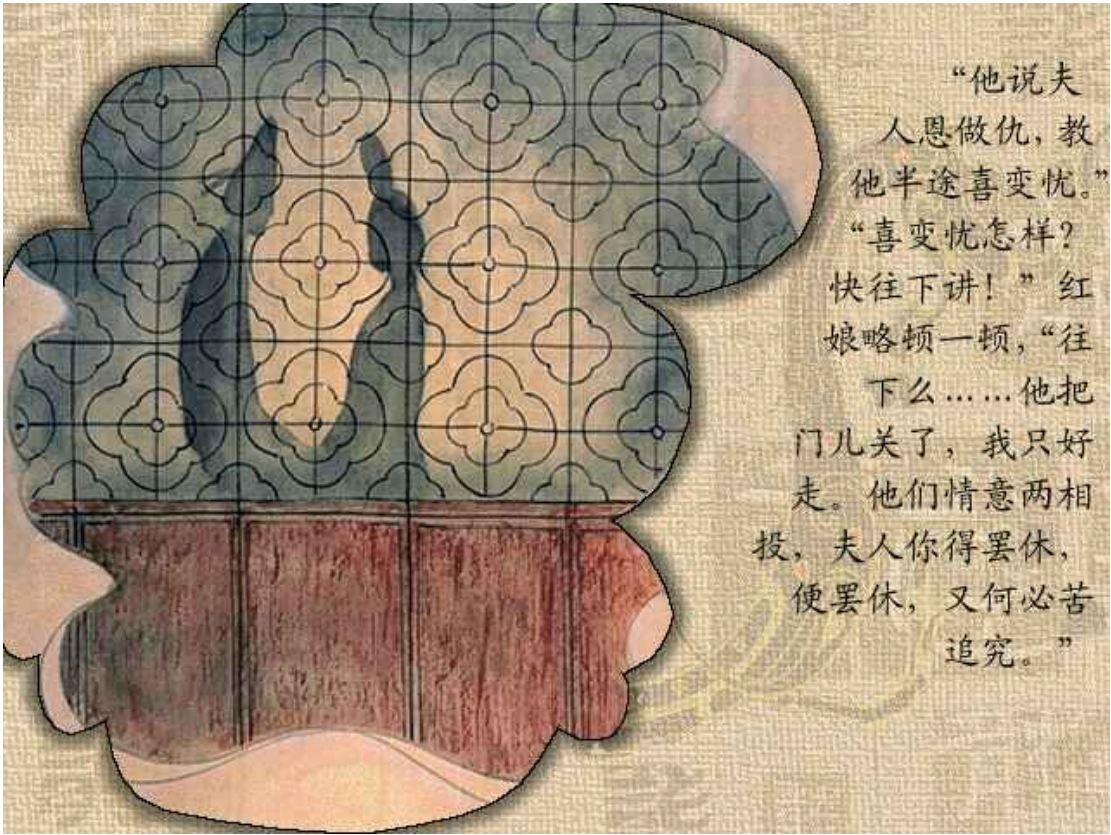 “他说夫
人恩做仇，教
他半途喜变忧。”
“喜变忧怎样？
快往下讲！” 红
娘略顿一顿，“往
下么……他把
门儿关了，我只好
走。他们情意两相
投，夫人你得罢休，
便罢休，又何必苦
追究。”